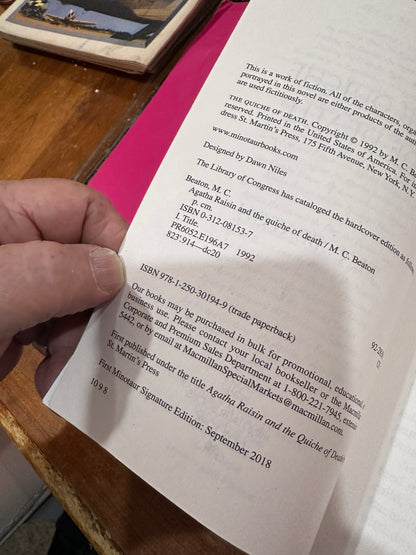 This is a work of fiction. All of the characters, orga
portrayed in this novel are either products of the auth
are used fictitiously.
THE QUICHE OF DEATH. Copyright © 1992 by M. C. Be
reserved. Printed in the United States of America. For in
dress St. Martin's Press, 175 Fifth Avenue, New York, N.Y.
www.minotaurbooks.com
Designed by Dawn Niles
The Library of Congress has cataloged the hardcover edition as
Beaton, M. C.
Agatha Raisin and the quiche of death / M. C. Beaton
p. cm.
ISBN 0-312-08153-7
I. Title.
PR6052.E196A7 1992
823'.914—dc20
ISBN 978-1-250-30194-9 (trade paperback)
Our books may be purchased in bulk for promotional, educational,
business use. Please contact your local bookseller or the Macmilla
Corporate and Premium Sales Department at 1-800-221-7945, extens
5442, or by email at MacmillanSpecialMarkets@macmillan.com.
First published under the title Agatha Raisin and the Quiche of Death
St. Martin's Press
First Minotaur Signature Edition: September 2018
10 9 8